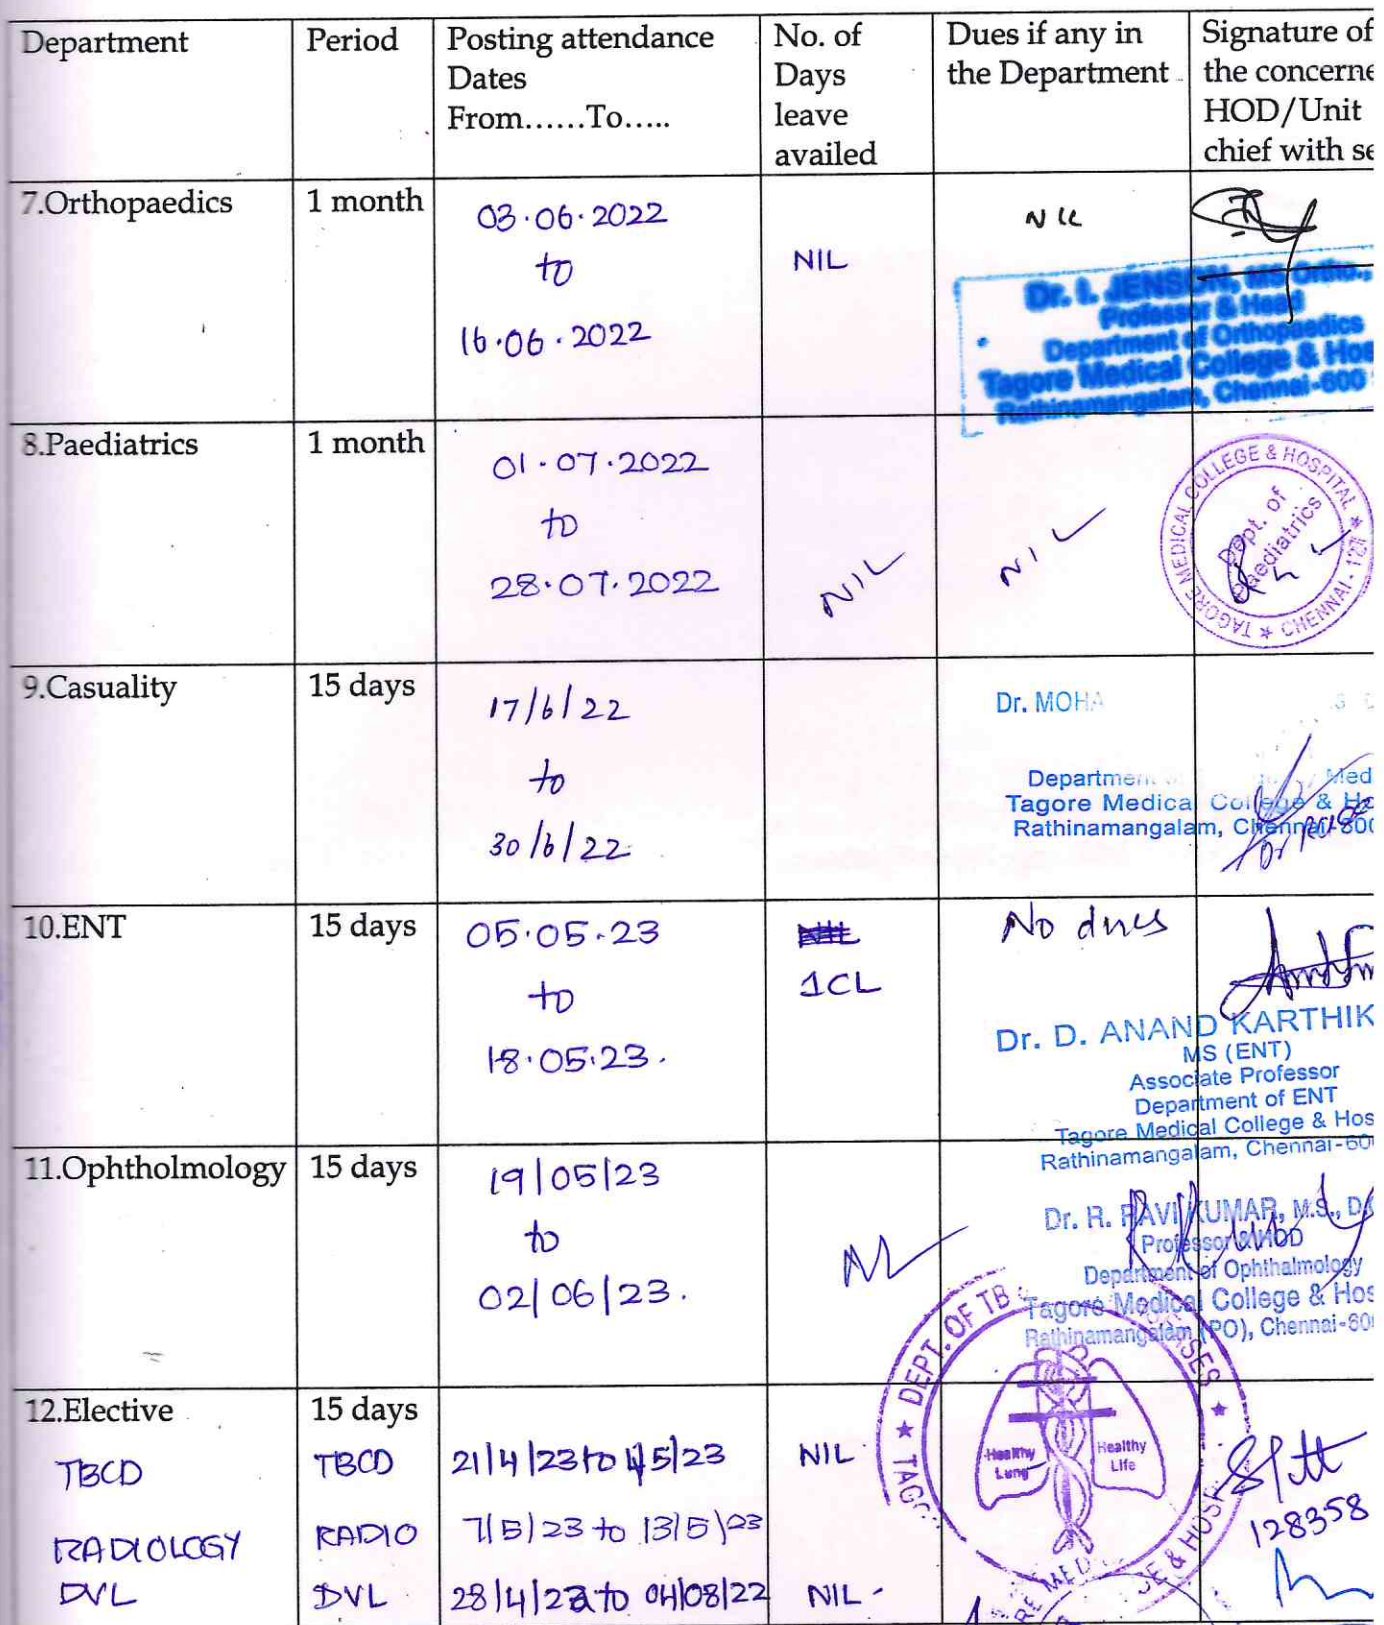 Department Period Posting attendance Dates From......To..... No. of Days leave availed Dues if any in the Department Signature of the concerne HOD/Unit chief with se
7.Orthopaedics 1 month 03.06.2022
to
16.06.2022
NIL
NIL
Dr. I. JENSON, MS Ortho.,
Professor & Head
Department of Orthopaedics
Tagore Medical College & Hos
Rathinamangalam, Chennai-600
8.Paediatrics 1 month 01.07.2022
to
28.07.2022
NIL
NIL
TAGORE MEDICAL COLLEGE & HOSPITAL ★ CHENNAI - 127 ★
Dept. of
Paediatrics
9.Casuality 15 days 17/6/22
to
30/6/22
Dr. MOHA
Department Med
Tagore Medical College & Ho
Rathinamangalam, Chennai-600
10.ENT 15 days 05.05.23
to
18.05.23.
NIL
1CL
No dues
Dr. D. ANAND KARTHIK
MS (ENT)
Associate Professor
Department of ENT
Tagore Medical College & Hos
Rathinamangalam, Chennai-60
11.Ophtholmology 15 days 19/05/23
to
02/06/23.
Dr. R. RAVI KUMAR, M.S., D.
Professor & HOD
Department of Ophthalmology
Tagore Medical College & Hos
Rathinamangalam (PO), Chennai-60
12.Elective 15 days
TBCD TBCD 21/4/23 to 4/5/23 NIL
RADIOLOGY RADIO 7/5/23 to 13/5/23
DVL DVL to 04/08/22 NIL -
★ DEPT. OF TB
Healthy
Lung
Healthy
Life
128358